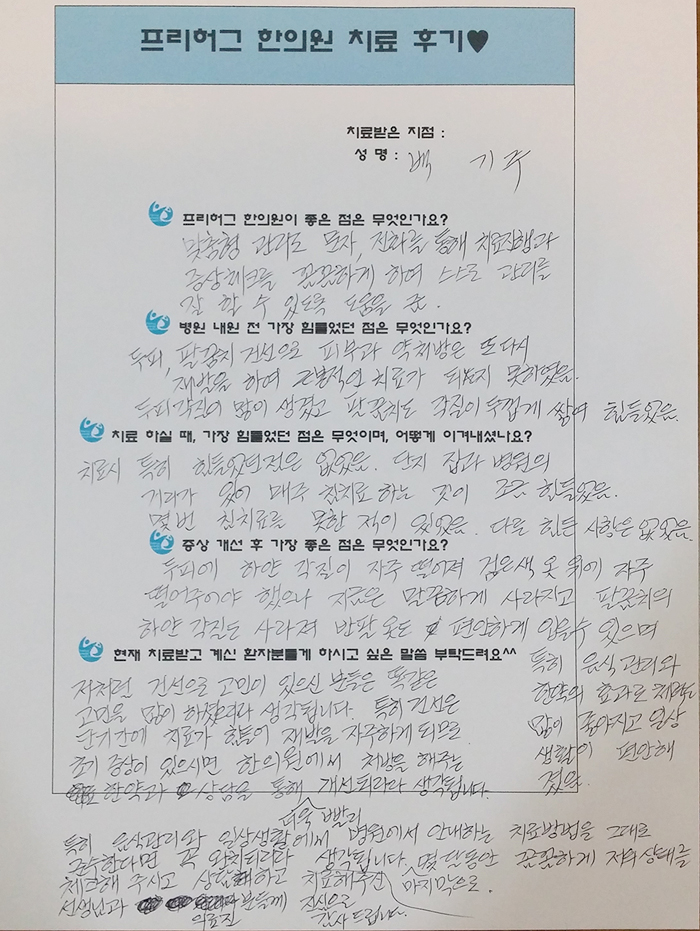 프리허그 한의원 치료 후기♥
치료받은 지점 :
성 명 : 백 기주
프리허그 한의원이 좋은 점은 무엇인가요?
맞춤형 관리로 문자, 전화를 통해 치료진행과
증상체크를 꼼꼼하게 하여 스스로 관리를
잘 할 수 있도록 도움을 줌.
병원 내원 전 가장 힘들었던 점은 무엇인가요?
두피, 팔꿈치 건선으로 피부과 약처방은 또다시
재발을 하여 근본적인 치료가 되지 못하였음.
두피각질이 많이 생겼고 팔꿈치도 각질이 두껍게 쌓여 힘들었음.
치료 하실 때, 가장 힘들었던 점은 무엇이며, 어떻게 이겨내셨나요?
치료시 특히 힘들었던점은 없었음. 단지 집과 병원의
거리가 있어 매주 침치료 하는 것이 조금 힘들었음.
몇번 침치료를 못한 적이 있었음. 다른 힘든 사항은 없었음.
증상 개선 후 가장 좋은 점은 무엇인가요?
두피에 하얀 각질이 자주 떨어져 검은색 옷 위에 자주
떨어주어야 했으나 지금은 말끔하게 사라지고 팔꿈치의
하얀 각질도 사라져 반팔 옷도 편안하게 입을수 있으며
특히 음식관리와
한약의 효과로 체력도
많이 좋아지고 일상
생활이 편안해
졌음.
현재 치료받고 계신 환자분들께 하시고 싶은 말씀 부탁드려요^^
저처럼 건선으로 고민이 있으신 분들은 똑같은
고민을 많이 하셨으리라 생각됩니다. 특히 건선은
단기간에 치료가 힘들어 재발을 자주하게 되므로
초기 증상이 있으시면 한의원에서 처방을 해주는
한약과 상담을 통해 더욱 빨리 개선되리라 생각됩니다.
특히 음식관리와 일상생활에서 병원에서 안내하는 치료방법을 그대로
준수한다면 꼭 완치되리라 생각됩니다. 마지막으로. 몇달동안 꼼꼼하게 저의 상태를
체크해 주시고 상담해주시고 치료해주신
선생님과 의료진 분들께 진심으로 감사 드립니다.